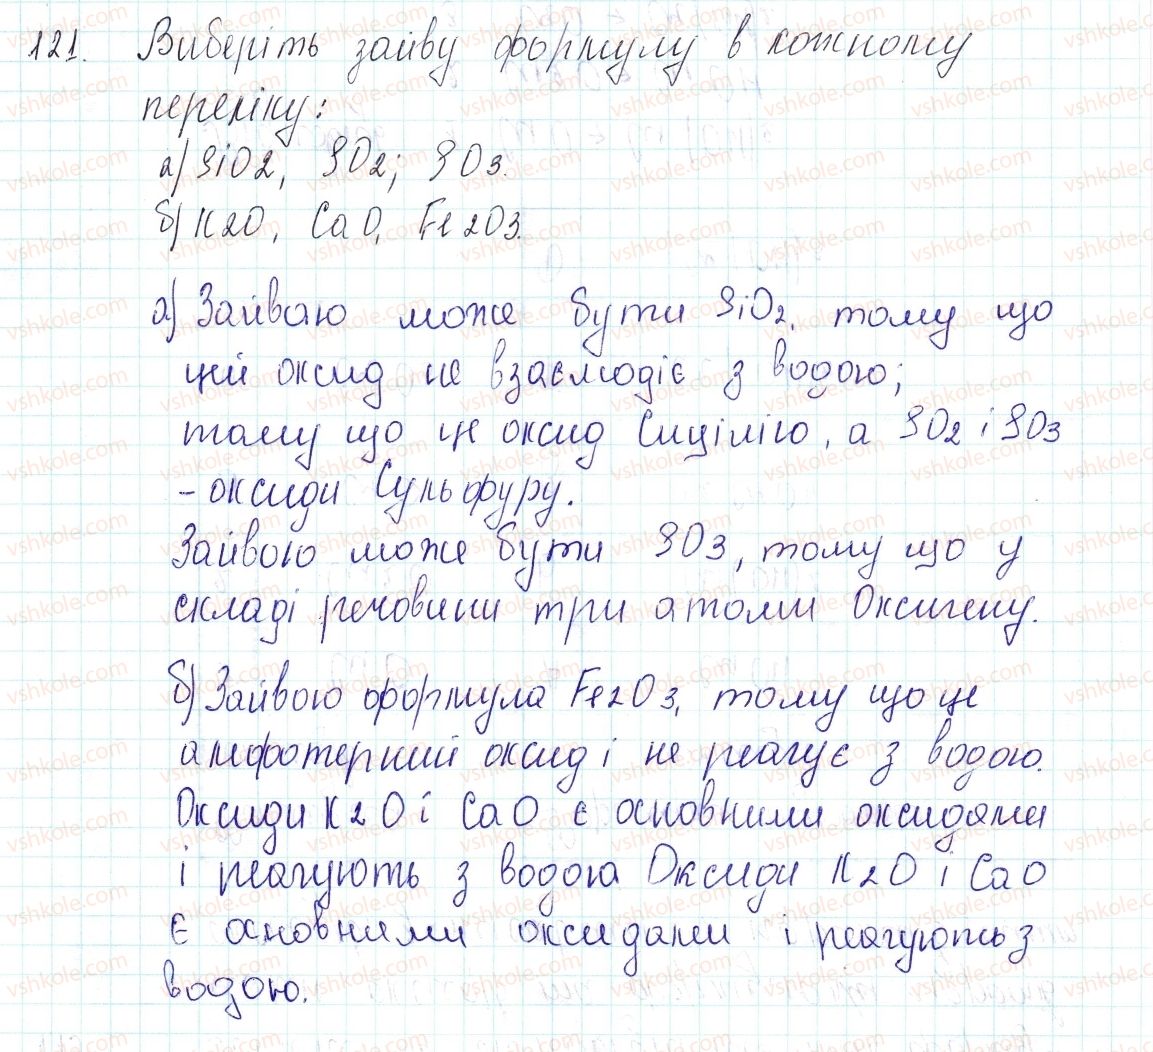 121. Виберіть зайву формулу в кожному
переліку:
а) SiO2, SO2; SO3.
б) K2O, CaO, Fe2O3.
а) Зайваю може бути SiO2, тому що
цей оксид не взаємодіє з водою;
тому що це оксид Силіцію, а SO2 і SO3
- оксиди Сульфуру.
Зайвою може бути SO3, тому що у
складі речовини три атоми Оксигену.
б) Зайвою формула Fe2O3, тому що це
амфотерний оксид і не реагує з водою.
Оксиди K2O і CaO є основними оксидами
і реагують з водою Оксиди K2O і CaO
є основними оксидами і реагують з
водою.